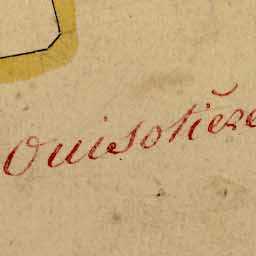 Ouisotière